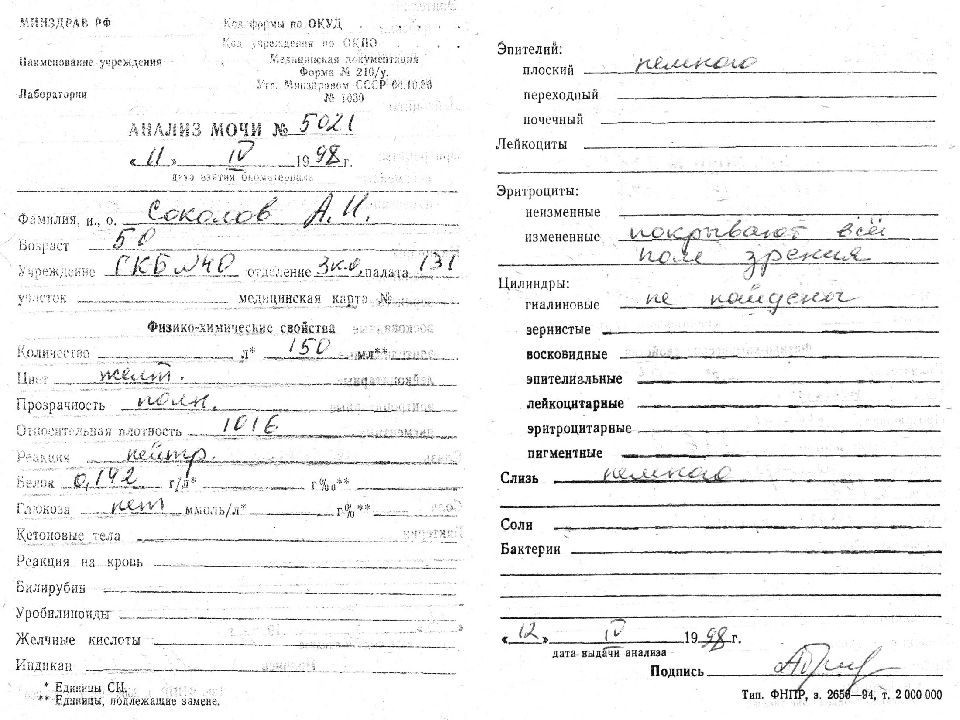 МИНЗДРАВ РФ
Код формы по ОКУД
Код учреждения по ОКПО
Наименование учреждения
Медицинская документация
Форма № 210/у.
Утв. Минздравом СССР 04.10.80
№ 1030
Лаборатории
АНАЛИЗ МОЧИ № 5021
« 11 » IV 19 98 г.
дата взятия биоматериала
Фамилия, и., о. Соколов А. И.
Возраст 50
Учреждение ГКБ №40 отделение 3 палата 131
участок медицинская карта №
Физико-химические свойства
Количество л* 150 мл**
Цвет желт.
Прозрачность полн.
Относительная плотность 1016
Реакция нейтр.
Белок 0,142 г/л* г%о**
Глюкоза нет ммоль/л* г%**
Кетоновые тела
Реакция на кровь
Билирубин
Уробилиноиды
Желчные кислоты
Индикан
* Единицы СИ.
** Единицы, подлежащие замене.
Эпителий:
плоский немного
переходный
почечный
Лейкоциты
Эритроциты:
неизменные
измененные покрывают всё
поле зрения
Цилиндры:
гиалиновые не найдены
зернистые
восковидные
эпителиальные
лейкоцитарные
эритроцитарные
пигментные
Слизь немного
Соли
Бактерии
« 12 » IV 19 98 г.
дата выдачи анализа
Подпись
Тип. ФНПР, з. 2650—94, т. 2 000 000